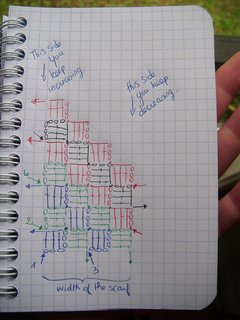 This side
you
keep
increasing
this side
you keep
decreasing
4
2
1
3
width of the scarf